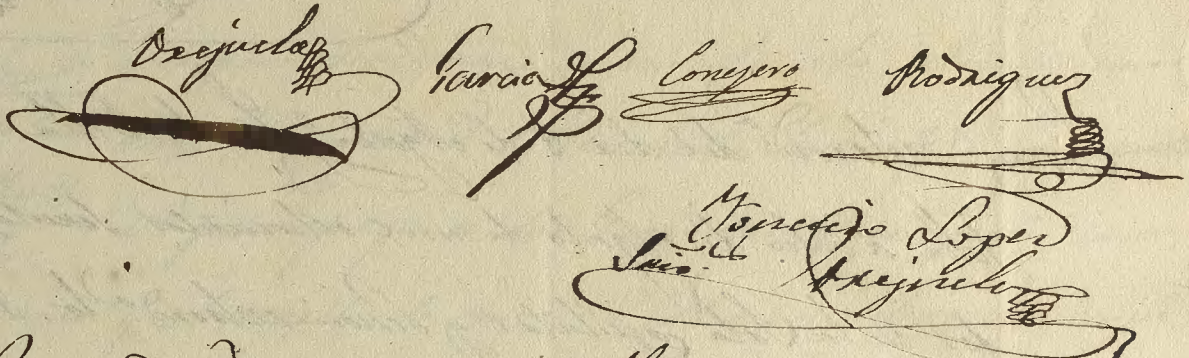 Orejuela Garcia Conejero Rodriguez
Ignacio Lopez
Srio. Orejuela